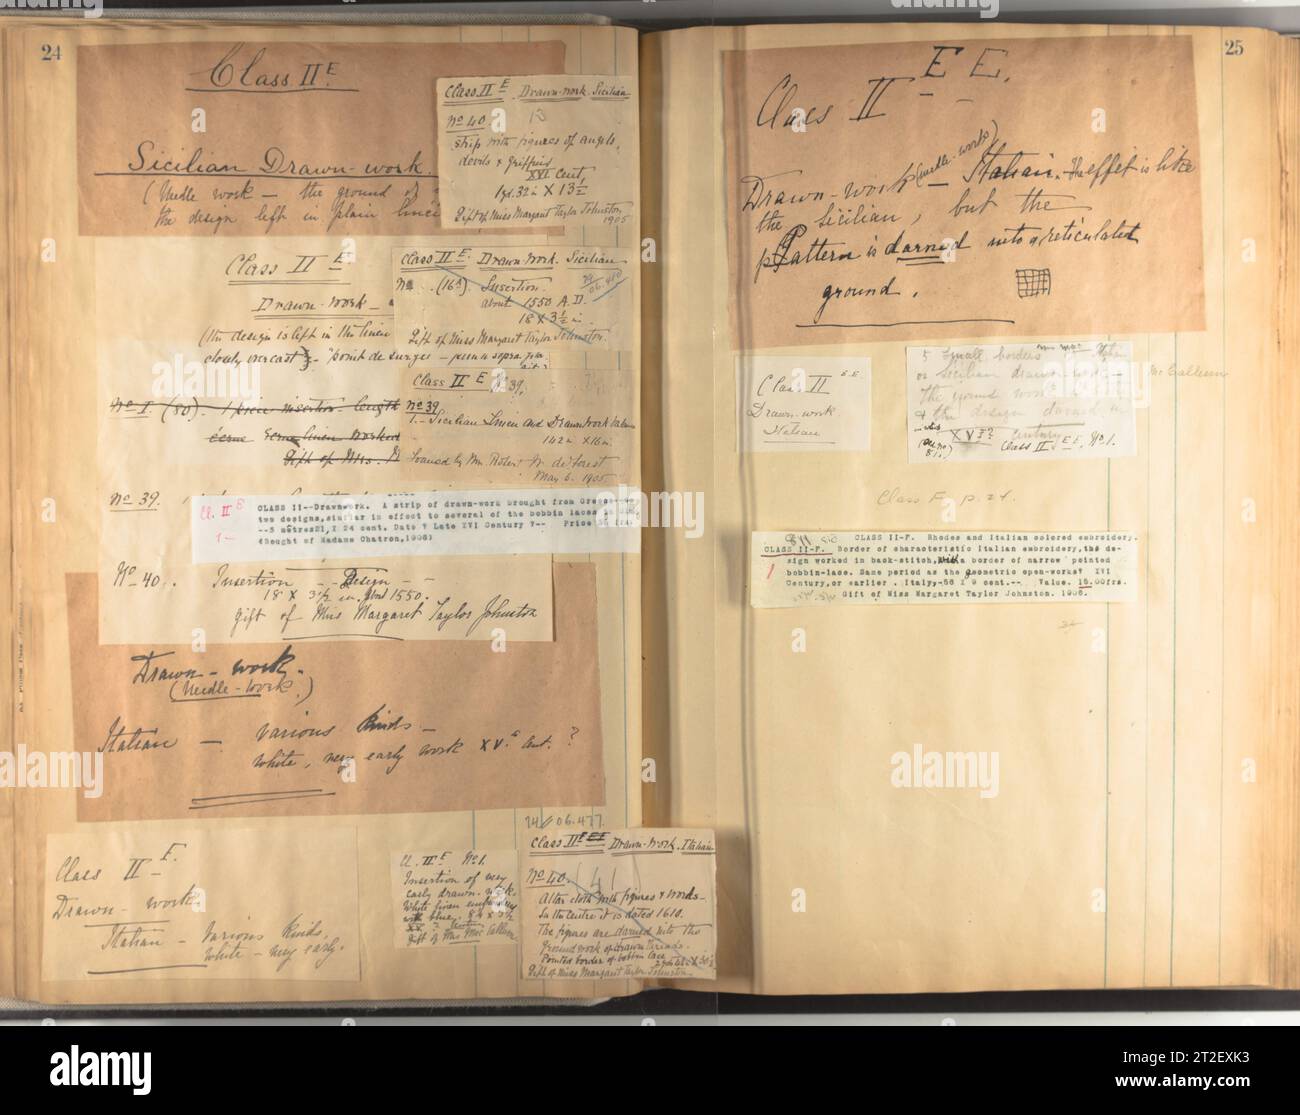 24
Class II E.
Sicilian Drawn-work.
(Needle work — the ground of
the design left in plain linen
Class II E. Drawn-work. Sicilian
No 40.
strip with figures of angels,
devils & Griffins
XVI Cent.
1yd. 32 in X 13½
Gift of Miss Margaret Taylor Johnston
1905
Class II E
Drawn-work —
(the design is left in the linen
closely overcast) - "point de
Class II E. Drawn Work. Sicilian
No . (16A) Insertion.
06.460
about 1550 A.D.
18 X 3½ in.
Gift of Miss Margaret Taylor Johnston.
Class II E No 39.
No 39
1.- Sicilian Linen and Drawn Work
142 in X 16 in.
Loaned by Mr. Robert W. de Forest
May 6. 1905
No 1 (80). 1 linen insertion length
écrue linen worked
Gift of Mrs.
No 39.
Cl. II E
1—
CLASS II--Drawnwork. A strip of drawn-work brought from Greece
two designs, similar in effect to several of the bobbin laces in
--5 metres21, X 24 cent. Date ? Late XVI Century ?-- Price
(Bought of Madame Chatron,1906)
No 40. Insertion - - Design - -
18 X 3½ in. About 1550.
Gift of Miss Margaret Taylor Johnston
Drawn - work.
(Needle-work.)
Italian — various kinds —
white, very early work XV.e Cent. ?
Class II E.
Drawn- work.
Italian - Various Kinds.
White - very early.
Cl. II E No 1.
Insertion of very
early drawn-work.
White linen embroidery
with blue. 84 X 3½
XV ? Century
Gift of Mrs McCallum
24 06.477.
Class II E Drawn-Work. Italian
No 40.
Altar cloth with figures & words-
In the centre it is dated 1610.
The figures are darned into the
Groundwork of drawn threads.
Pointed border of bobbin lace
Gift of Miss Margaret Taylor Johnston
25
Class II E E.
Drawn-work (needle-work) — Italian. The effet is like
the Sicilian, but the
Pattern is darned into a reticulated
ground.
Class II E.E.
Drawn-work
Italian
5 Small borders
or Sicilian drawn-work —
The ground
& the design darned in
XV ? Century
Class II E E. No 1.
McCallum
Class F, p. 27.
CLASS II-F. Rhodes and Italian colored embroidery.
CLASS II-F. Border of characteristic Italian embroidery,the de-
1
sign worked in back-stitch,with a border of narrow pointed
bobbin-lace. Same period as the geometric open-work? XVI
Century,or earlier. Italy,-56 X 9 cent.-- Value. 15.00frs.
Gift of Miss Margaret Taylor Johnston. 1906.
alamy
Image ID: 2T2EXK3
www.alamy.com